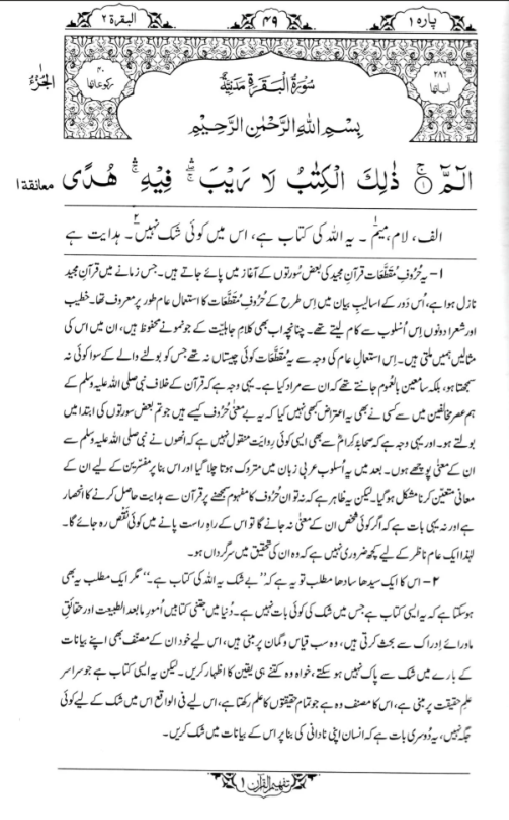 پارہ ۱
۴۹
البقرۃ ۲
۲۸۶
اٰیاتہا
سُوْرَۃُ الْبَقَرَۃِ مَدَنِیَّۃٌ
۴۰
رکوعاتہا
۱
الجزءُ
بِسْمِ اللّٰہِ الرَّحْمٰنِ الرَّحِیْمِ
الٓمّٓ ۚ﴿۱﴾ ذٰلِكَ الْكِتٰبُ لَا رَیْبَ ۛۚ فِیْهِ ۛۚ هُدًی معانقة ۱
الف، لام، میم۔ یہ اللہ کی کتاب ہے، اس میں کوئی شک نہیں۲۔ ہدایت ہے
۱ – یہ حُروفِ مُقَطَّعَات قرآن مجید کی بعض سُورتوں کے آغاز میں پائے جاتے ہیں۔ جس زمانے میں قرآن مجید
نازل ہوا ہے، اُس دَور کے اسالیبِ بیان میں اِس طرح کے حُرُوفِ مُقطَّعات کا استعمال عام طور پر معروف تھا۔ خطیب
اور شعرا دونوں اِس اُسلوب سے کام لیتے تھے۔ چنانچہ اب بھی کلامِ جاہلیّت کے جو نمونے محفوظ ہیں، ان میں اس کی
مثالیں ہمیں ملتی ہیں۔ اِس استعمالِ عام کی وجہ سے یہ مُقطَّعات کوئی چیستاں نہ تھے جس کو بولنے والے کے سوا کوئی نہ
سمجھتا ہو، بلکہ سامعین بالعُموم جانتے تھے کہ ان سے مراد کیا ہے۔ یہی وجہ ہے کہ قرآن کے خلاف نبی صلی اللہ علیہ وسلم کے
ہم عصر مخالفین میں سے کسی نے بھی یہ اعتراض کبھی نہیں کیا کہ یہ بے معنیٰ حُروف کیسے ہیں جو تم بعض سورتوں کی ابتدا میں
بولتے ہو۔ اور یہی وجہ ہے کہ صحابۂ کرامؓ سے بھی ایسی کوئی روایت منقول نہیں ہے کہ انھوں نے نبی صلی اللہ علیہ وسلم سے
ان کے معنی پوچھے ہوں۔ بعد میں یہ اُسلوب عربی زبان میں متروک ہوتا چلا گیا اور اس بنا پر مفسّرین کے لیے ان کے
معانی متعیّن کرنا مشکل ہو گیا۔ لیکن یہ ظاہر ہے کہ نہ تو ان حُروف کا مفہوم سمجھنے پر قرآن سے ہدایت حاصل کرنے کا انحصار
ہے اور نہ یہی بات ہے کہ اگر کوئی شخص ان کے معنیٰ نہ جانے گا تو اس کے راہِ راست پانے میں کوئی نقص رہ جائے گا۔
لہٰذا ایک عام ناظر کے لیے کچھ ضروری نہیں ہے کہ وہ ان کی تحقیق میں سرگرداں ہو۔
۲ – اس کا ایک سیدھا سادھا مطلب تو یہ ہے کہ ”بے شک یہ اللہ کی کتاب ہے۔“ مگر ایک مطلب یہ بھی
ہو سکتا ہے کہ یہ ایسی کتاب ہے جس میں شک کی کوئی بات نہیں ہے۔ دُنیا میں جتنی کتابیں اُمورِ ما بعد الطبیعت اور حقائقِ
ماورائے اِدراک سے بحث کرتی ہیں، وہ سب قیاس و گمان پر مبنی ہیں، اس لیے خود ان کے مصنّف بھی اپنے بیانات
کے بارے میں شک سے پاک نہیں ہو سکتے، خواہ وہ کتنے ہی یقین کا اظہار کریں۔ لیکن یہ ایسی کتاب ہے جو سراسر
علمِ حقیقت پر مبنی ہے، اس کا مصنف وہ ہے جو تمام حقیقتوں کا علم رکھتا ہے، اس لیے فی الواقع اس میں شک کے لیے کوئی
جگہ نہیں، یہ دُوسری بات ہے کہ انسان اپنی نادانی کی بنا پر اس کے بیانات میں شک کریں۔
تفہیم القرآن ۱